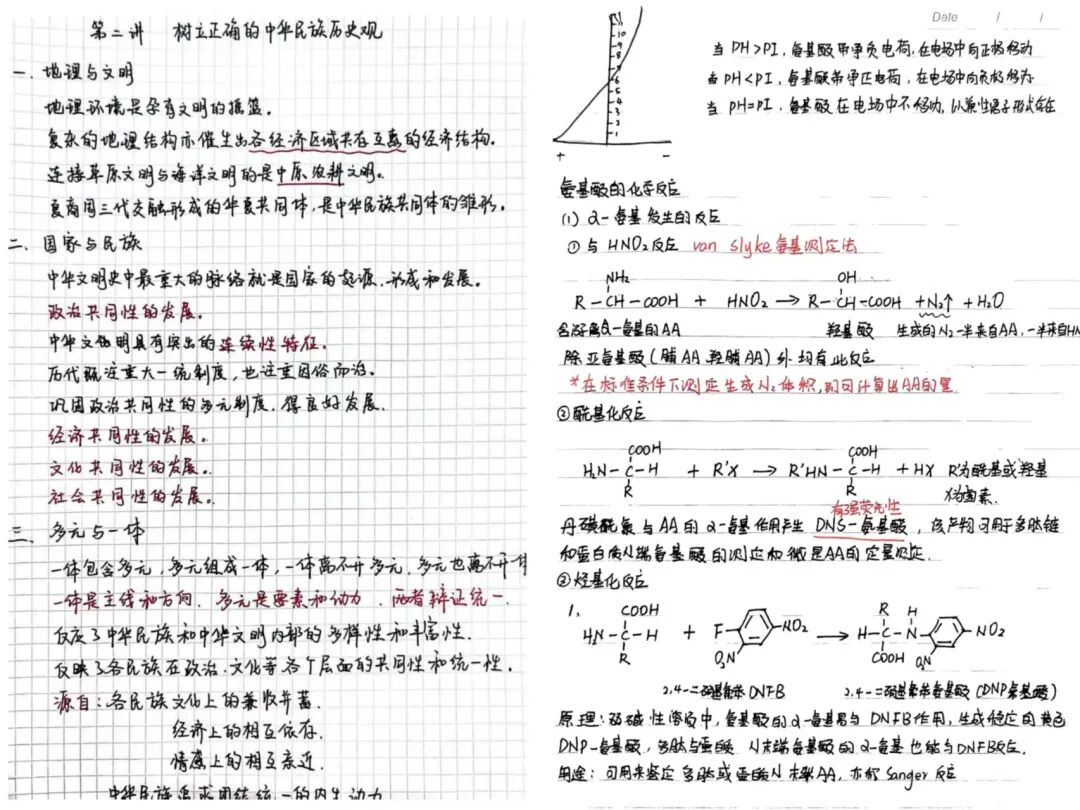 第二讲 树立正确的中华民族历史观
一、地理与文明
地理环境是孕育文明的摇篮。
复杂的地理结构亦催生出各经济区域共存互惠的经济结构。
连接草原文明与海洋文明的是中原农耕文明。
夏商周三代交融形成的华夏共同体,是中华民族共同体的雏形。
二、国家与民族
中华文明史中最重大的脉络就是国家的起源、形成和发展。
政治共同性的发展。
中华文明具有突出的连续性特征。
历代既注重大一统制度,也注重因俗而治。
巩固政治共同性的多元制度,得良好发展.
经济共同性的发展。
文化共同性的发展。
社会共同性的发展。
三、多元与一体
一体包含多元,多元组成一体,一体离不开多元,多元也离不开一体
一体是主线和方向,多元是要素和动力,两者辩证统一.
反应了中华民族和中华文明内部的多样性和丰富性.
反映了各民族在政治、文化等各个层面的共同性和统一性.
源自:各民族文化上的兼收并蓄.
经济上的相互依存.
情感上的相互亲近.
中华民族追求团结统一的内生动力
Date / /
11
10
9
8
7
6
5
4
3
2
1
+ −
当 PH>PI,氨基酸带净负电荷,在电场中向正极移动
当 PH<PI,氨基酸带净正电荷,在电场中向负极移动
当 PH=PI,氨基酸在电场中不移动,以兼性离子形式存在
氨基酸的化学反应
(1) α-氨基发生的反应
① 与 HNO₂反应 van slyke 氨基测定法
NH₂ OH
R-CH-COOH + HNO₂ → R-CH-COOH +N₂↑ +H₂O
α-氨基的AA 羟基酸 生成的N₂一半来自AA,一半来自HN
除亚氨基酸(脯AA、羟脯AA)外均有此反应
*在标准条件下测定生成N₂体积,即可计算出AA的量
②酰基化反应
COOH COOH
H₂N-C-H + R'X → R'HN-C-H +HX R'为酰基或羟基
R R X为卤素.
有强荧光性
丹磺酰氯与AA的α-氨基作用产生 DNS-氨基酸,该产物可用于多肽链
和蛋白质N端氨基酸的测定和微量AA的定量测定.
②烃基化反应
1、 COOH R H
H₂N-C-H + F- -NO₂ → H-C-N- -NO₂
R O₂N COOH O₂N
2,4-二硝基氟苯 DNFB 2,4-二硝基苯氨基酸 (DNP氨基酸)
原理:弱碱性溶液中,氨基酸的α-氨基易与DNFB作用,生成稳定的黄色
DNP-氨基酸,多肽与蛋白质N末端氨基酸的α-氨基也能与DNFB反应.
用途:可用来鉴定多肽或蛋白质N末端AA,亦称Sanger反应